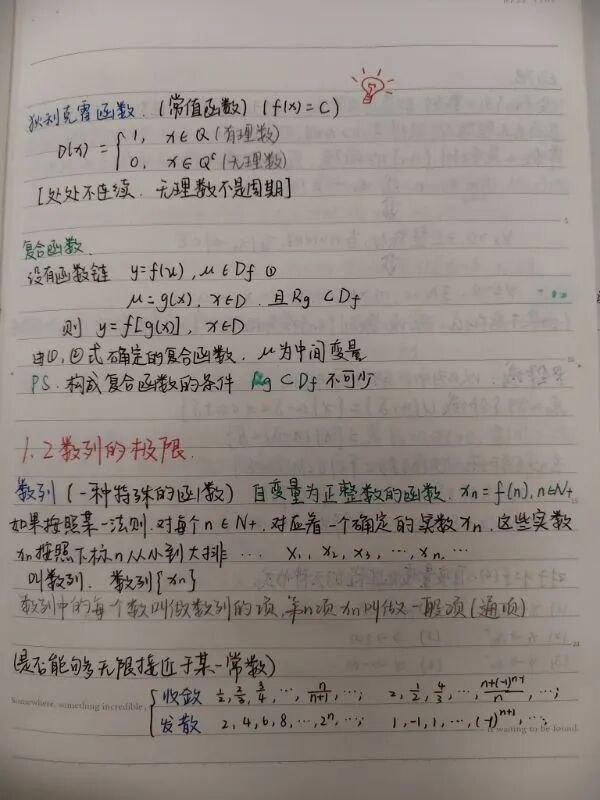 狄利克雷函数. (常值函数) (f(x)=C)
D(x)= { 1, x∈Q (有理数)
0, x∈Qᶜ (无理数)
[处处不连续. 无理数不是周期]
复合函数.
设有函数链 y=f(u), μ∈Df ①
μ=g(x), x∈D. 且Rg⊂Df
则 y=f[g(x)], x∈D
由①,②式确定的复合函数. μ为中间变量
PS. 构成复合函数的条件 Rg⊂Df 不可少
1.2 数列的极限.
数列 (一种特殊的函数) 自变量为正整数的函数. xn=f(n), n∈N+
如果按照某一法则.对每个n∈N+, 对应着一个确定的实数xn, 这些实数
xn按照下标n从小到大排 ··· x₁, x₂, x₃, ···, xn, ···
叫数列. 数列{xn}
数列中的每个数叫做数列的项,第n项xn叫做一般项(通项)
(是否能够无限接近于某一常数)
{ 收敛 1/2, 2/3, 3/4, ···, n/(n+1), ···; 2, 1/2, 4/3, ···, (n+(-1)ⁿ⁻¹)/n, ···;
Somewhere, something incredible,
发散 2, 4, 6, 8, ···, 2ⁿ, ···; 1, -1, 1, ···, (-1)ⁿ⁺¹, ···;
is waiting to be found.